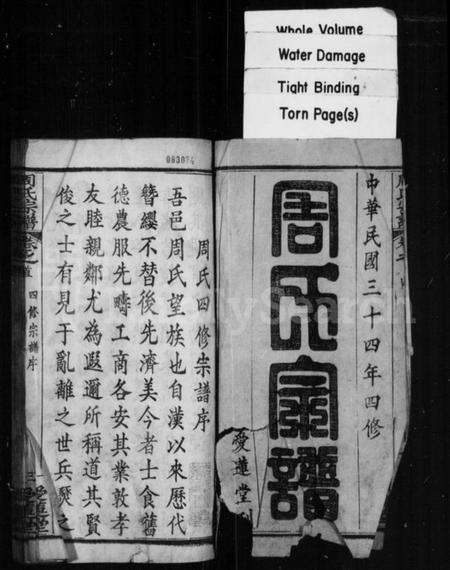 Whole Volume
Water Damage
Tight Binding
Torn Page(s)
中華民國三十四年四修
周氏宗譜
愛蓮堂
083074
周氏四修宗譜序
吾邑周氏望族也自漢以來歷代
簪纓不替後先濟美今者士食舊
德農服先疇工商各安其業敦孝
友睦親鄰尤為遐邇所稱道其賢
俊之士有見于亂離之世兵燹之
周氏宗譜
卷之首
四修宗譜序
三
愛蓮堂
FamilySearch